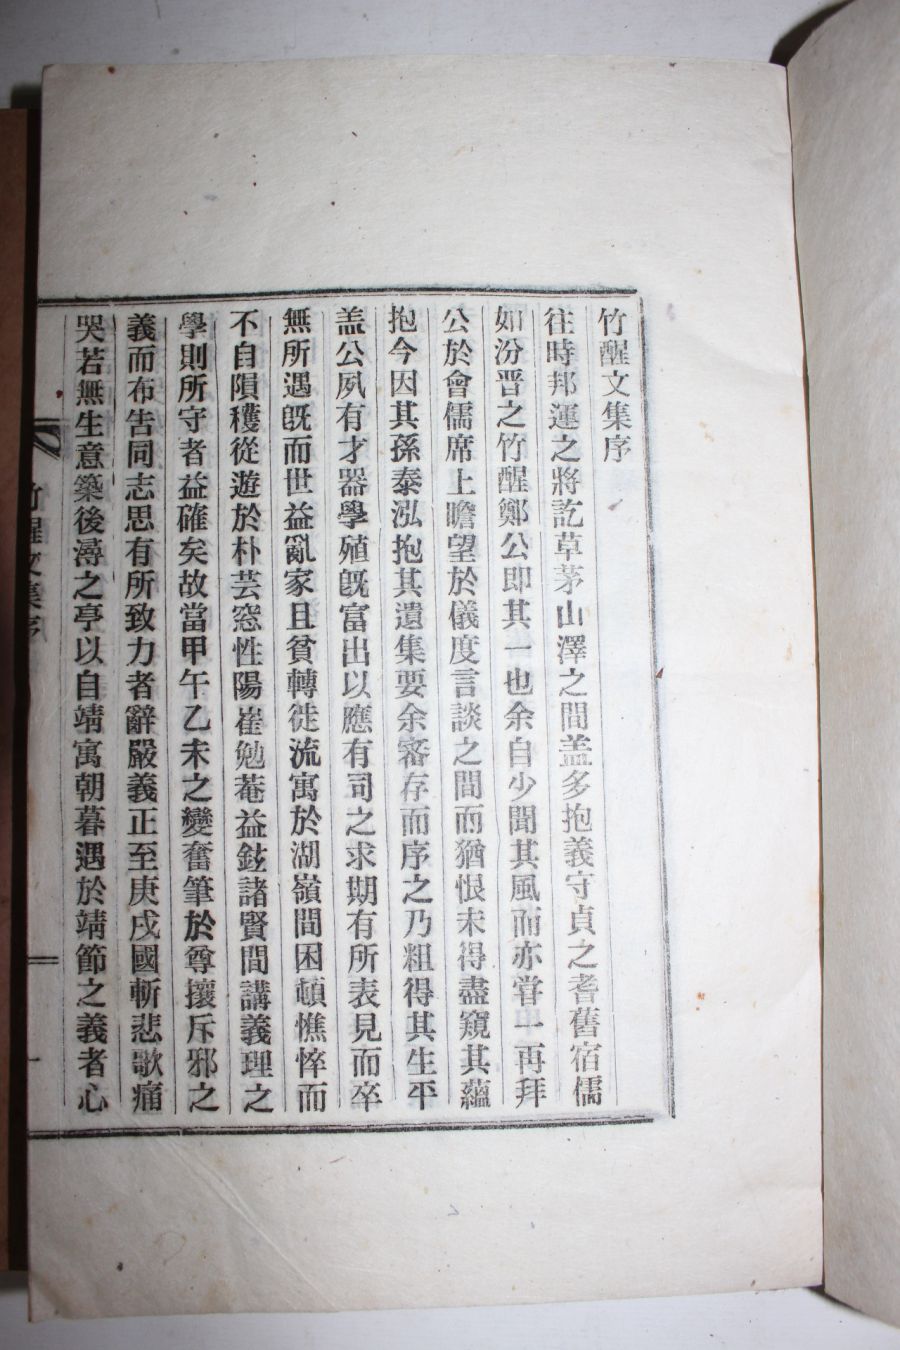 竹醒文集序
往時邦運之將訖草茅山澤之間盖多抱義守貞之耆舊宿儒
如汾晋之竹醒鄭公即其一也余自少聞其風而亦甞一再拜
公於會儒席上瞻望於儀度言談之間而猶恨未得盡窺其蘊
抱今因其孫泰泓抱其遺集要余審存而序之乃粗得其生平
盖公夙有才器學殖旣富出以應有司之求期有所表見而卒
無所遇旣而世益亂家且貧轉徙流寓於湖嶺間困頓憔悴而
不自隕穫從遊於朴芸窓性陽崔勉菴益鉉諸賢間講義理之
學則所守者益確矣故當甲午乙未之變奮筆於尊攘斥邪之
義而布告同志思有所致力者辭嚴義正至庚戌國斬悲歌痛
哭若無生意築後潯之亭以自靖寓朝暮遇於靖節之義者心
竹醒文集序
一